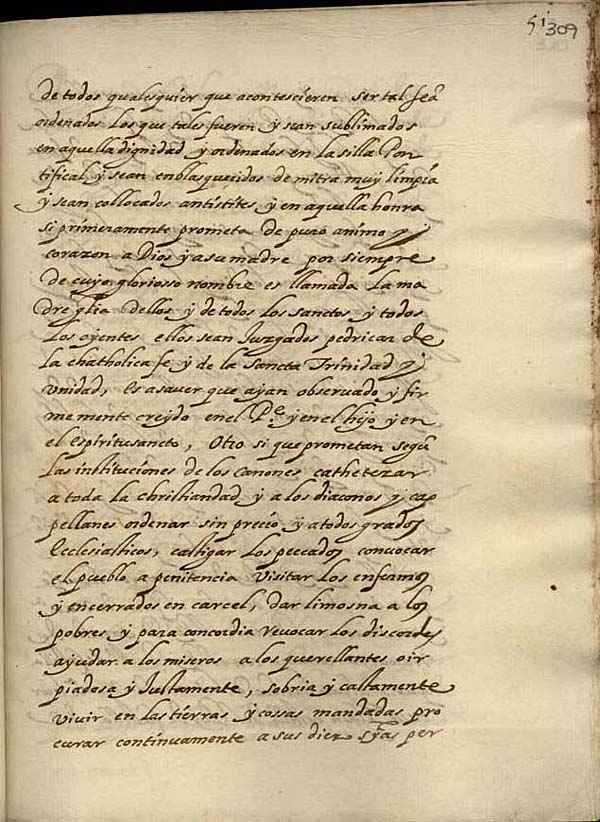 51 309
de todos qualesquier que acontescieren ser tal seã
ordenados los que tales fueren y sean sublimados
en aquella dignidad y ordenados en la silla Pon
tifical y sean enblasquecidos de mitra muy limpia
y sean collocados antistites y en aquella honra
si primeramente prometa de puro animo y
corazon a Dios y a su madre por siempre
de cuyo glorioso nombre es llamada la ma
dre glia dellos y de todos los sanctos y todos
los oyentes ellos sean Juzgados pedricar de
la chatholica fe y de la Sancta Trinidad y
vnidad, es a saver que ayan observado y fir
memente creydo en el Pe y en el hijo y en
el espiritusancto, Otro si que prometan segũ
las instituciones de los canones cathetezar
a toda la christiandad y a los diaconos y cap
pellanes ordenar sin precio y a todos grados
Ecclesiasticos, castigar los peccados convocar
el pueblo a penitencia visitar los enfermos
y encerrados en carcel, dar limosna a los
pobres y para concordia revocar los discordes
ayudar a los miseros a los querellantes oir
piadosa y Justamente, sobria y castamente
vivir en las tierras y cossas mandadas pro
curar continuamente a sus diez per